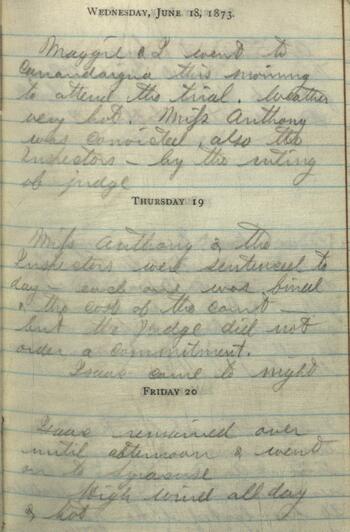 Wednesday, June 18, 1873.
Maggie & I went to
Canandaigua this morning
to attend the trial. Weather
very hot. Miss Anthony
was convicted, also the
Inspectors - by the ruling
of judge
Thursday 19
Miss Anthony & the
Inspectors were sentenced to
day - each one was fined
& the cost of the court -
but the Judge did not
order a commitment.
Isaac came to night
Friday 20
Isaac remained over
until afternoon & went
on to Syracuse
High wind all day
& hot